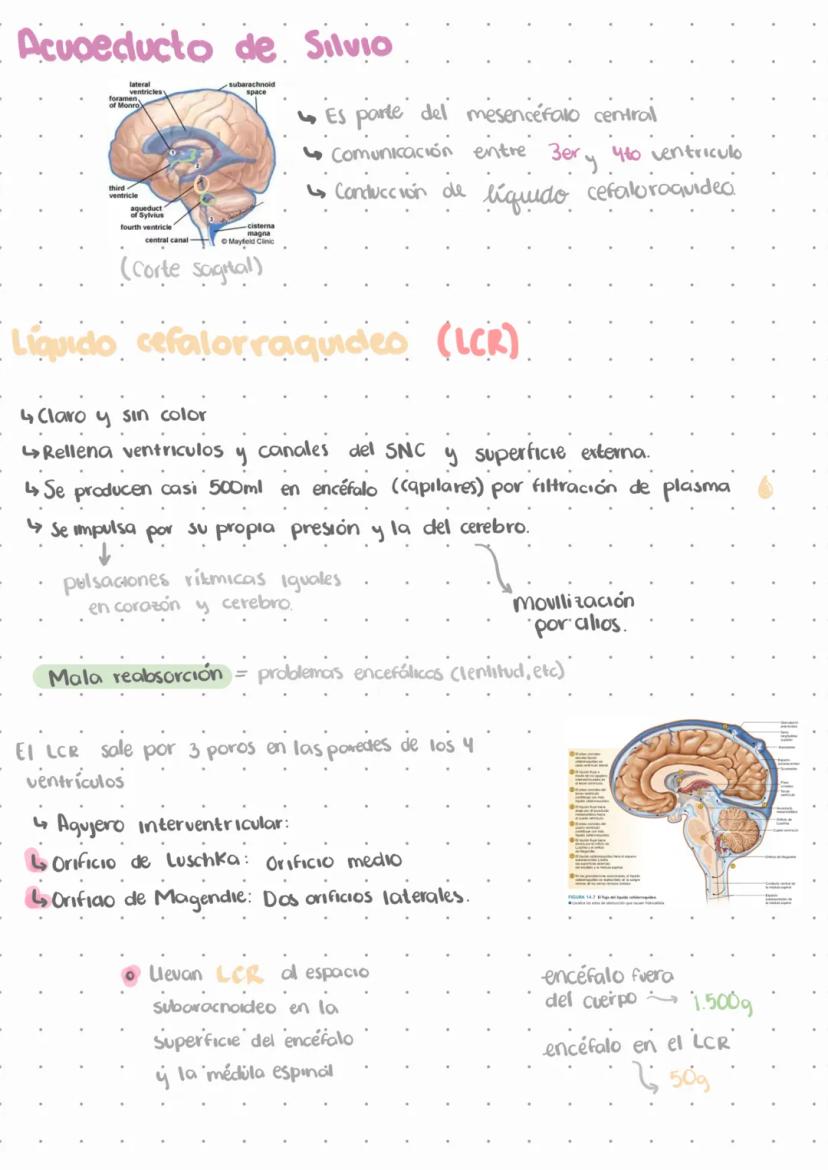 Acuoeducto de Silvio
lateral ventricles
subarachnoid space
foramen of Monro
third ventricle
aqueduct of Sylvius
fourth ventricle
central canal
cisterna magna
© Mayfield Clinic
(Corte sagital)
↳ Es parte del mesencéfalo central
↳ Comunicación entre 3er y 4to ventriculo
↳ Conducción de líquido cefaloraquideo
Líquido cefalorraquideo (LCR)
↳ Claro y sin color
↳ Rellena ventriculos y canales del SNC y superficie externa.
↳ Se producen casi 500ml en encéfalo (capilares) por filtración de plasma
↳ Se impulsa por su propia presión y la del cerebro.
pulsaciones rítmicas iguales
en corazón y cerebro.
Movilización
por cilios.
Mala reabsorción = problemas encefálicos (lentitud, etc)
El LCR sale por 3 poros en las paredes de los 4
ventrículos
↳ Agujero interventricular:
↳ Orificio de Luschka: Orificio medio
↳ Orificio de Magendie: Dos orificios laterales.
FIGURA 14.7 El flujo del líquido cefalorraquídeo.
Llevan LCR al espacio
subaracnoideo en la
superficie del encéfalo
y la médula espinal
encéfalo fuera
del cuerpo → 1.500g
encéfalo en el LCR
↳ 50g